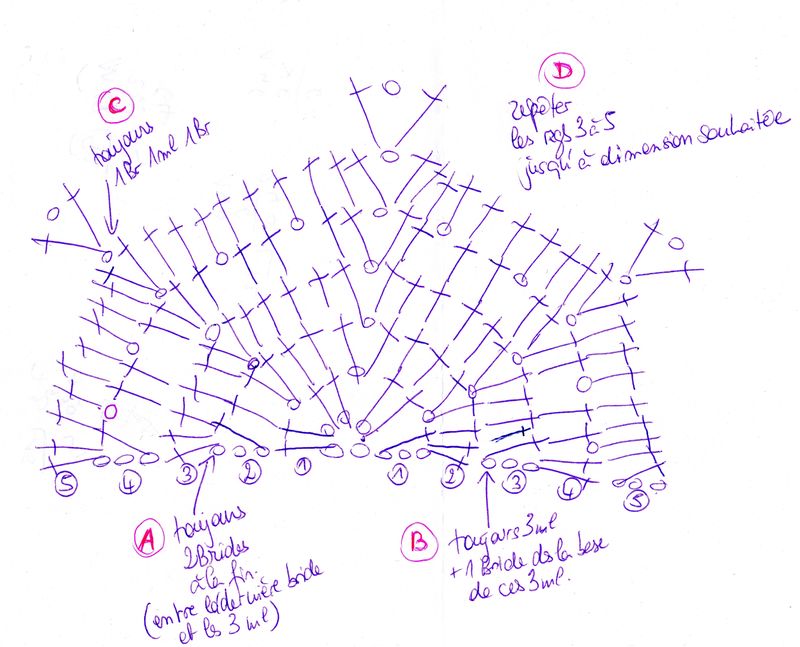 C
toujours
1Br 1ml 1Br
D
répéter
les rgs 3 à 5
jusqu'à dimension souhaitée
5 4 3 2 1 1 2 3 4 5
A
toujours
2 Brides
à la fin.
(entre la dernière bride
et les 3 ml)
B
toujours 3 ml
+ 1 Bride ds la base
de ces 3 ml.